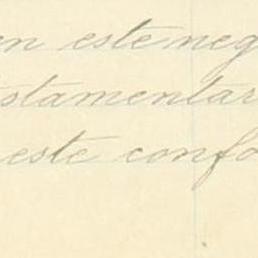 en este neg
stamentar
este confo